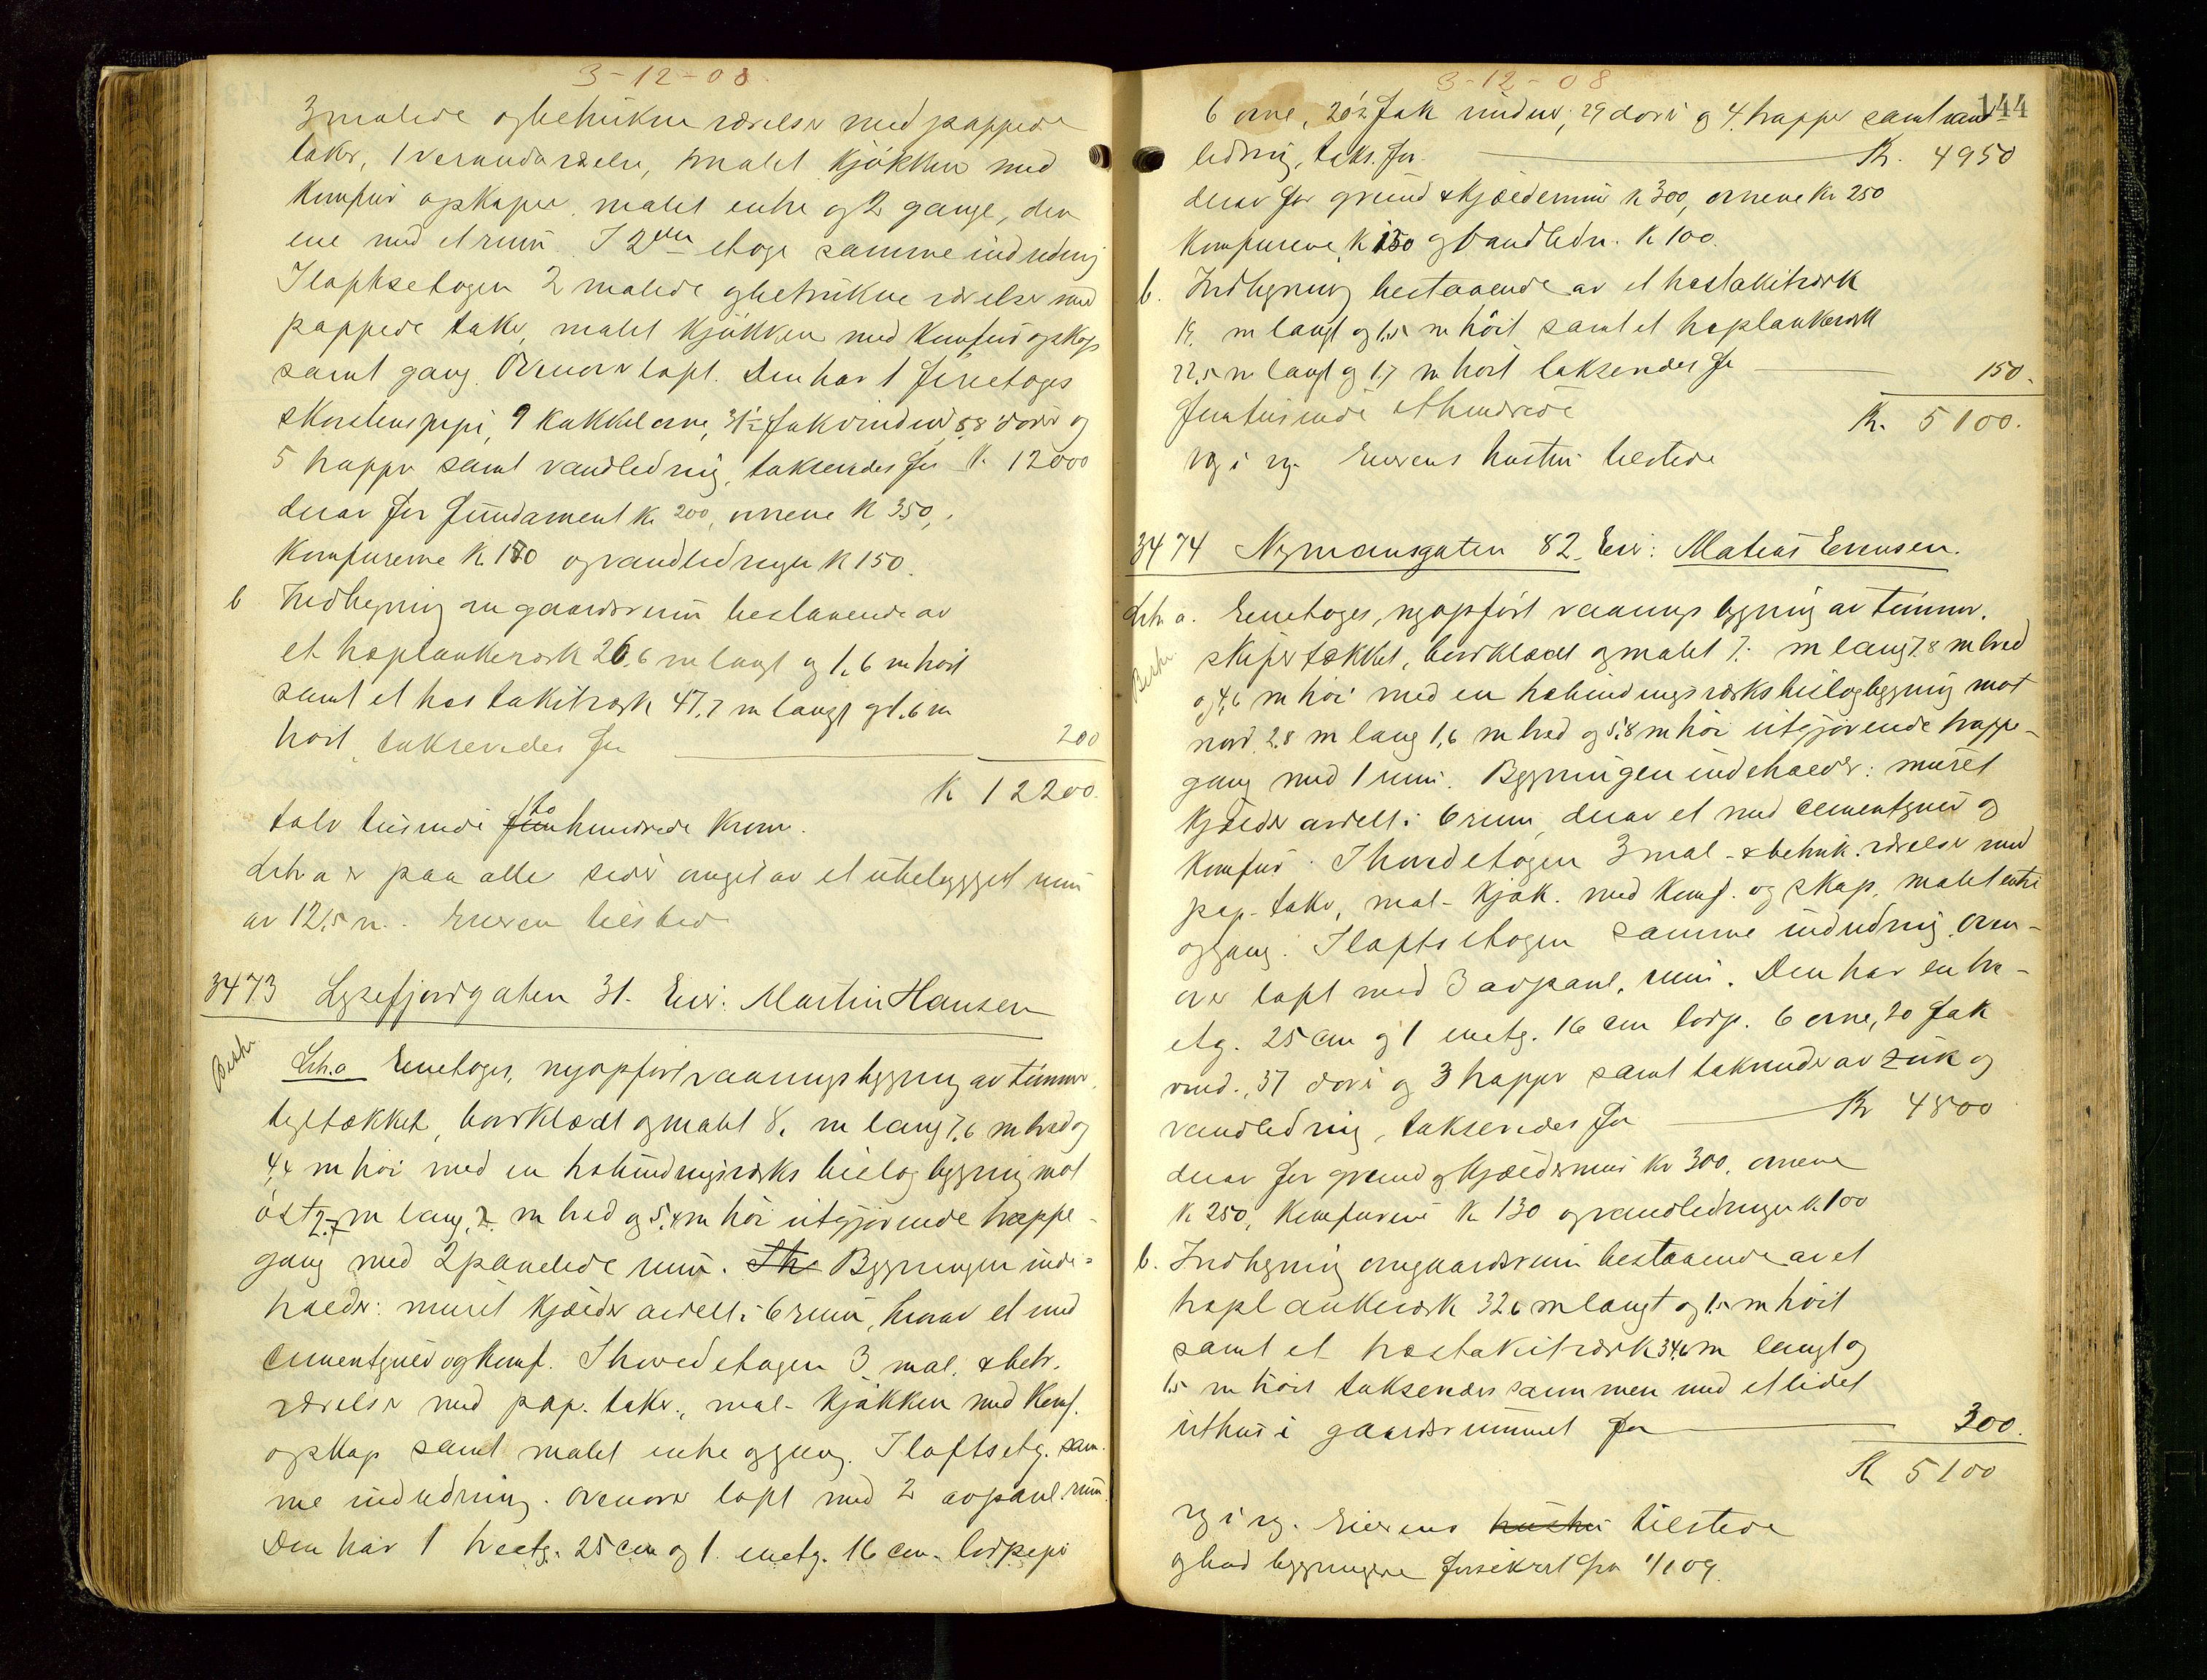 3-12-08
3 malede og betrukne værelser med pappede
taker, 1 verandaværelse, malet kjøkken med
komfur og skaper, malet entre og 2 gange, den
ene med et rum. I 2den etage samme indredning
I loftsetagen 2 malede og betrukne værelser med
pappede taker, malet kjøkken med komfur og skap
samt gang. Ovenover loft. Den har 1 fireetages
skorstenspipe, 9 kakkelovne, 31½ fak vinduer, 58 dører og
5 trapper samt vandledning, takseredes for K. 12000
derav for fundament Kr 200, ovnene K 350,
Komfurerne K. 180 og vandledningen K 150.
b Indhegning om gaardsrum bestaaende av
et træplankeverk 26,6 m langt og 1,6 m høit
samt et træstakitverk 47,7 m langt og 1,6 m
høit, takseredes for 200
K 12200.
tolv tusinde to hundrede kroner.
Litr a er paa alle sider omgit av et ubebygget rum
av 12,5 m. Eieren tilstede
3473 Lysefjordgaten 31. Eier: Martin Hansen
Beskr.
Litr. a Eenetages, nyopført vaaningsbygning av tømmer,
teglstækket, bordklædt og malet 8, m lang 7,6 m bred og
4,4 m høi med en træbindingsverks bislagbygning mot
øst 2,7 m lang, 2, m bred og 5,4 m høi utgjørende trappe-
gang med 2 panelede rum. Bygningen inde-
holder: muret kjælder avdelt i 6 rum, hvorav et med
cementgulv og komf. I hovedetagen 3 mal. & betr.
værelser med pap. taker, mal- kjøkken med komf.
og skap samt malet entre og gang. I loftsetg. sam-
me indredning. Ovenover loft med 2 avpanl. rum.
Den har 1 treetg. 25 cm og 1 enetg. 16 cm. lodpipe
3-12-08
144
6 ovne, 20½ fak vinduer, 29 dører og 4 trapper samt vand-
ledning, taks. for Kr. 4950
derav for grund & kjældermur K 300, ovnene Kr 250
Komfurene K 130 og vandledn. K 100.
b. Indhegning bestaaende av et træstakitverk
19, m langt og 1,5 m høit samt et træplankeverk
22,5 m langt og 1,7 m høit takseredes for 150.
femtusinde et hundrede Kr. 5100.
Eierens hustru tilstede
3474 Nymansgaten 82. Eier: Matias Evensen.
Litr a. Eenetages, nyopført vaaningsbygning av tømmer,
Beskr.
skifertækket, bordklædt og malet 7, m lang 7,8 m bred
og 4,6 m høi med en træbindingsverksbislagbygning mot
nord 2,8 m lang 1,6 m bred og 5,8 m høi utgjørende trappe-
gang med 1 rum. Bygningen indeholder: muret
kjælder avdelt i 6 rum, derav et med cementgulv og
komfur. I hovedetagen 3 mal- & betruk. værelser med
pap- taker, mal- kjøk. med komf. og skap, malet entre
og gang. I loftsetagen samme indredning. Oven-
over loft med 3 avpanl. rum. Den har en tre-
etg. 25 cm og 1 enetg. 16 cm lodp. 6 ovne, 20 fak
vind., 37 dører og 3 trapper samt takrender av zink og
vandledning, takseredes for Kr 4800
derav for grund og kjældermur Kr 300, ovnene
K 250, Komfurene K 130 og vandledningen K 100
b. Indhegning om gaardsrum bestaaende av et
træplankeverk 32,6 m langt og 1,5 m høit
samt et træstakitverk 34,6 m langt og
1,5 m høit takseredes sammen med et lidet
uthus i gaardsrummet for 300.
K 5100
Eierens hustru tilstede
og bad bygningene forsikret fra 1/1 09.